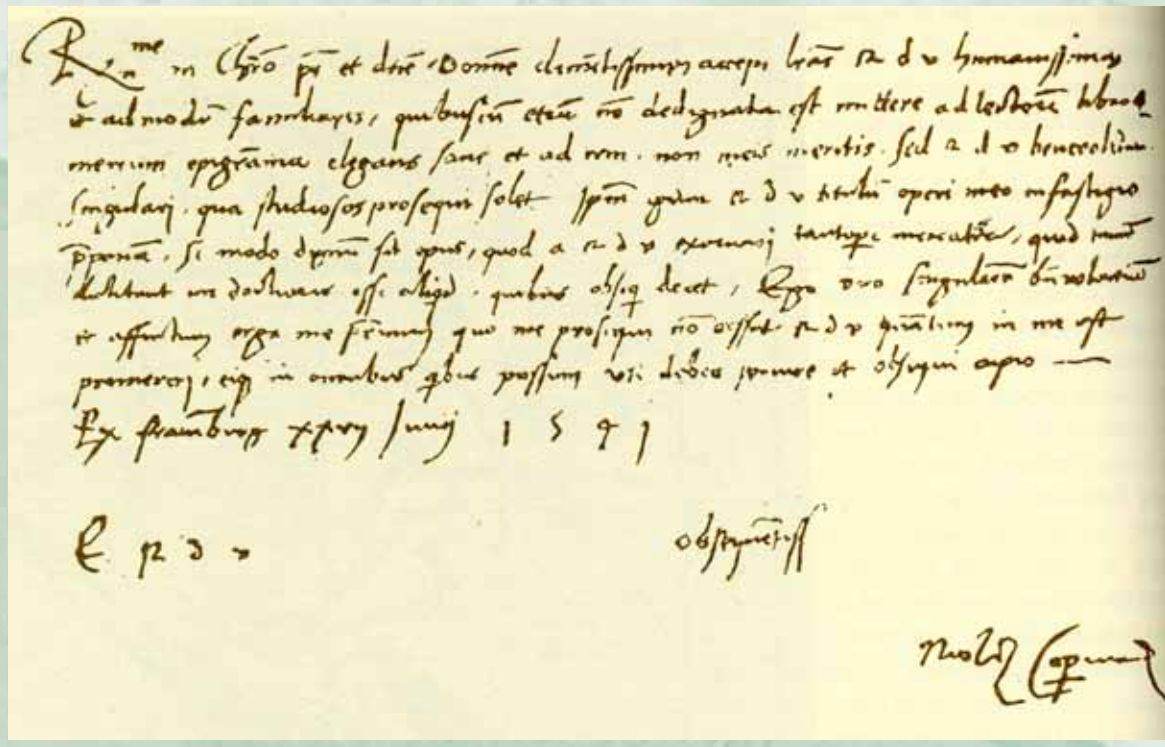 R^me in Chro pr et dne Domine clementissime accepi lras R d v humanissimas
et admodum familiares, quibuscum etiam no dedignata est mittere ad lectorem libro
meorum epigrama elegans sane et ad rem, non meis meritis, sed R d v benevolentia
singulari, qua studiosos prosequi solet Ipm R d v titulum operi meo in fastigio
pponam, si modo dignum sit opus, quod a R d v exornari tantopere mereatur, quod tamen
dictitant me doctiores esse aliqd, quibus obsequi decet, Ego vero singularem benevolentiam
et affectum erga me quo me prosequi no cessat R d v quantum in me est
promereri, eiq in omnibus qbus possum uti debeo servire et obsequi cupio
Ex frauenburg xxvij Junij 1541
E R d v
obsequentiss
Nicolaus Copernicus